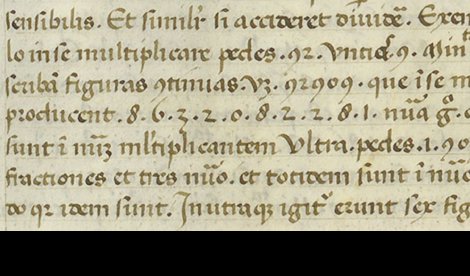 sensibilis. Et similr̃ si accideret diuidẽ. Exen
lo in se multiplicare pedes. 92. Vntiaꝝ. 9. Min
scribã figuras ꝯtinuas. Vꝫ. 92909. que ĩ se m
producent. 8. 6. 3. 2. 0. 8. 2. 2. 8. 1. nũa g̊.
sunt ĩ nũꝫ ml̃tiplicantem Vltra. pedes. 1.
fractiones et tres nũo. et totidem sunt ĩ nũo
do qꝛ idem sunt. In utraqꝫ igit᷑ erunt sex fig